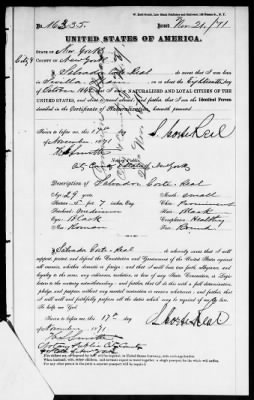 No. 16335. Issued Nov. 21/71
UNITED STATES OF AMERICA.
STATE OF New York
City & COUNTY OF New York
I, Salvador Corte Real do swear that I was born
in Sevilla Spain on the Eighteenth day of
October 1842 that I am a NATURALIZED AND LOYAL CITIZEN OF THE
UNITED STATES, and about to travel abroad, and further, that I am the Identical Person
described in the Certificate of Naturalization herewith presented.
Sworn to before me this 17th
day of November 1871
S. Corte Real
Notary Public
City County & State of New York
Description of Salvador Corte-Real
Age 29 years
Mouth small
Stature 5 ft 7 inches Eng.
Chin Prominent
Forehead Medium
Hair Black
Eyes Black
Complexion Healthy
Nose Roman
Face Round
I, Salvador Corte-Real do solemnly swear that I will
support, protect and defend the Constitution and Government of the United States against
all enemies, whether domestic or foreign; and that I will bear true faith, allegiance and
loyalty to the same, any ordinance, resolution or law of any State, Convention or
Legislature to the contrary notwithstanding; and further, that I do this with a full determination,
pledge and purpose, without any mental reservation or evasion whatsoever; and further, that
I will well and faithfully perform all the duties which may be required of me by law.
So help me God.
Sworn to before me, this 17th day
of November 1871
S. Corte Real
Notary Public City County